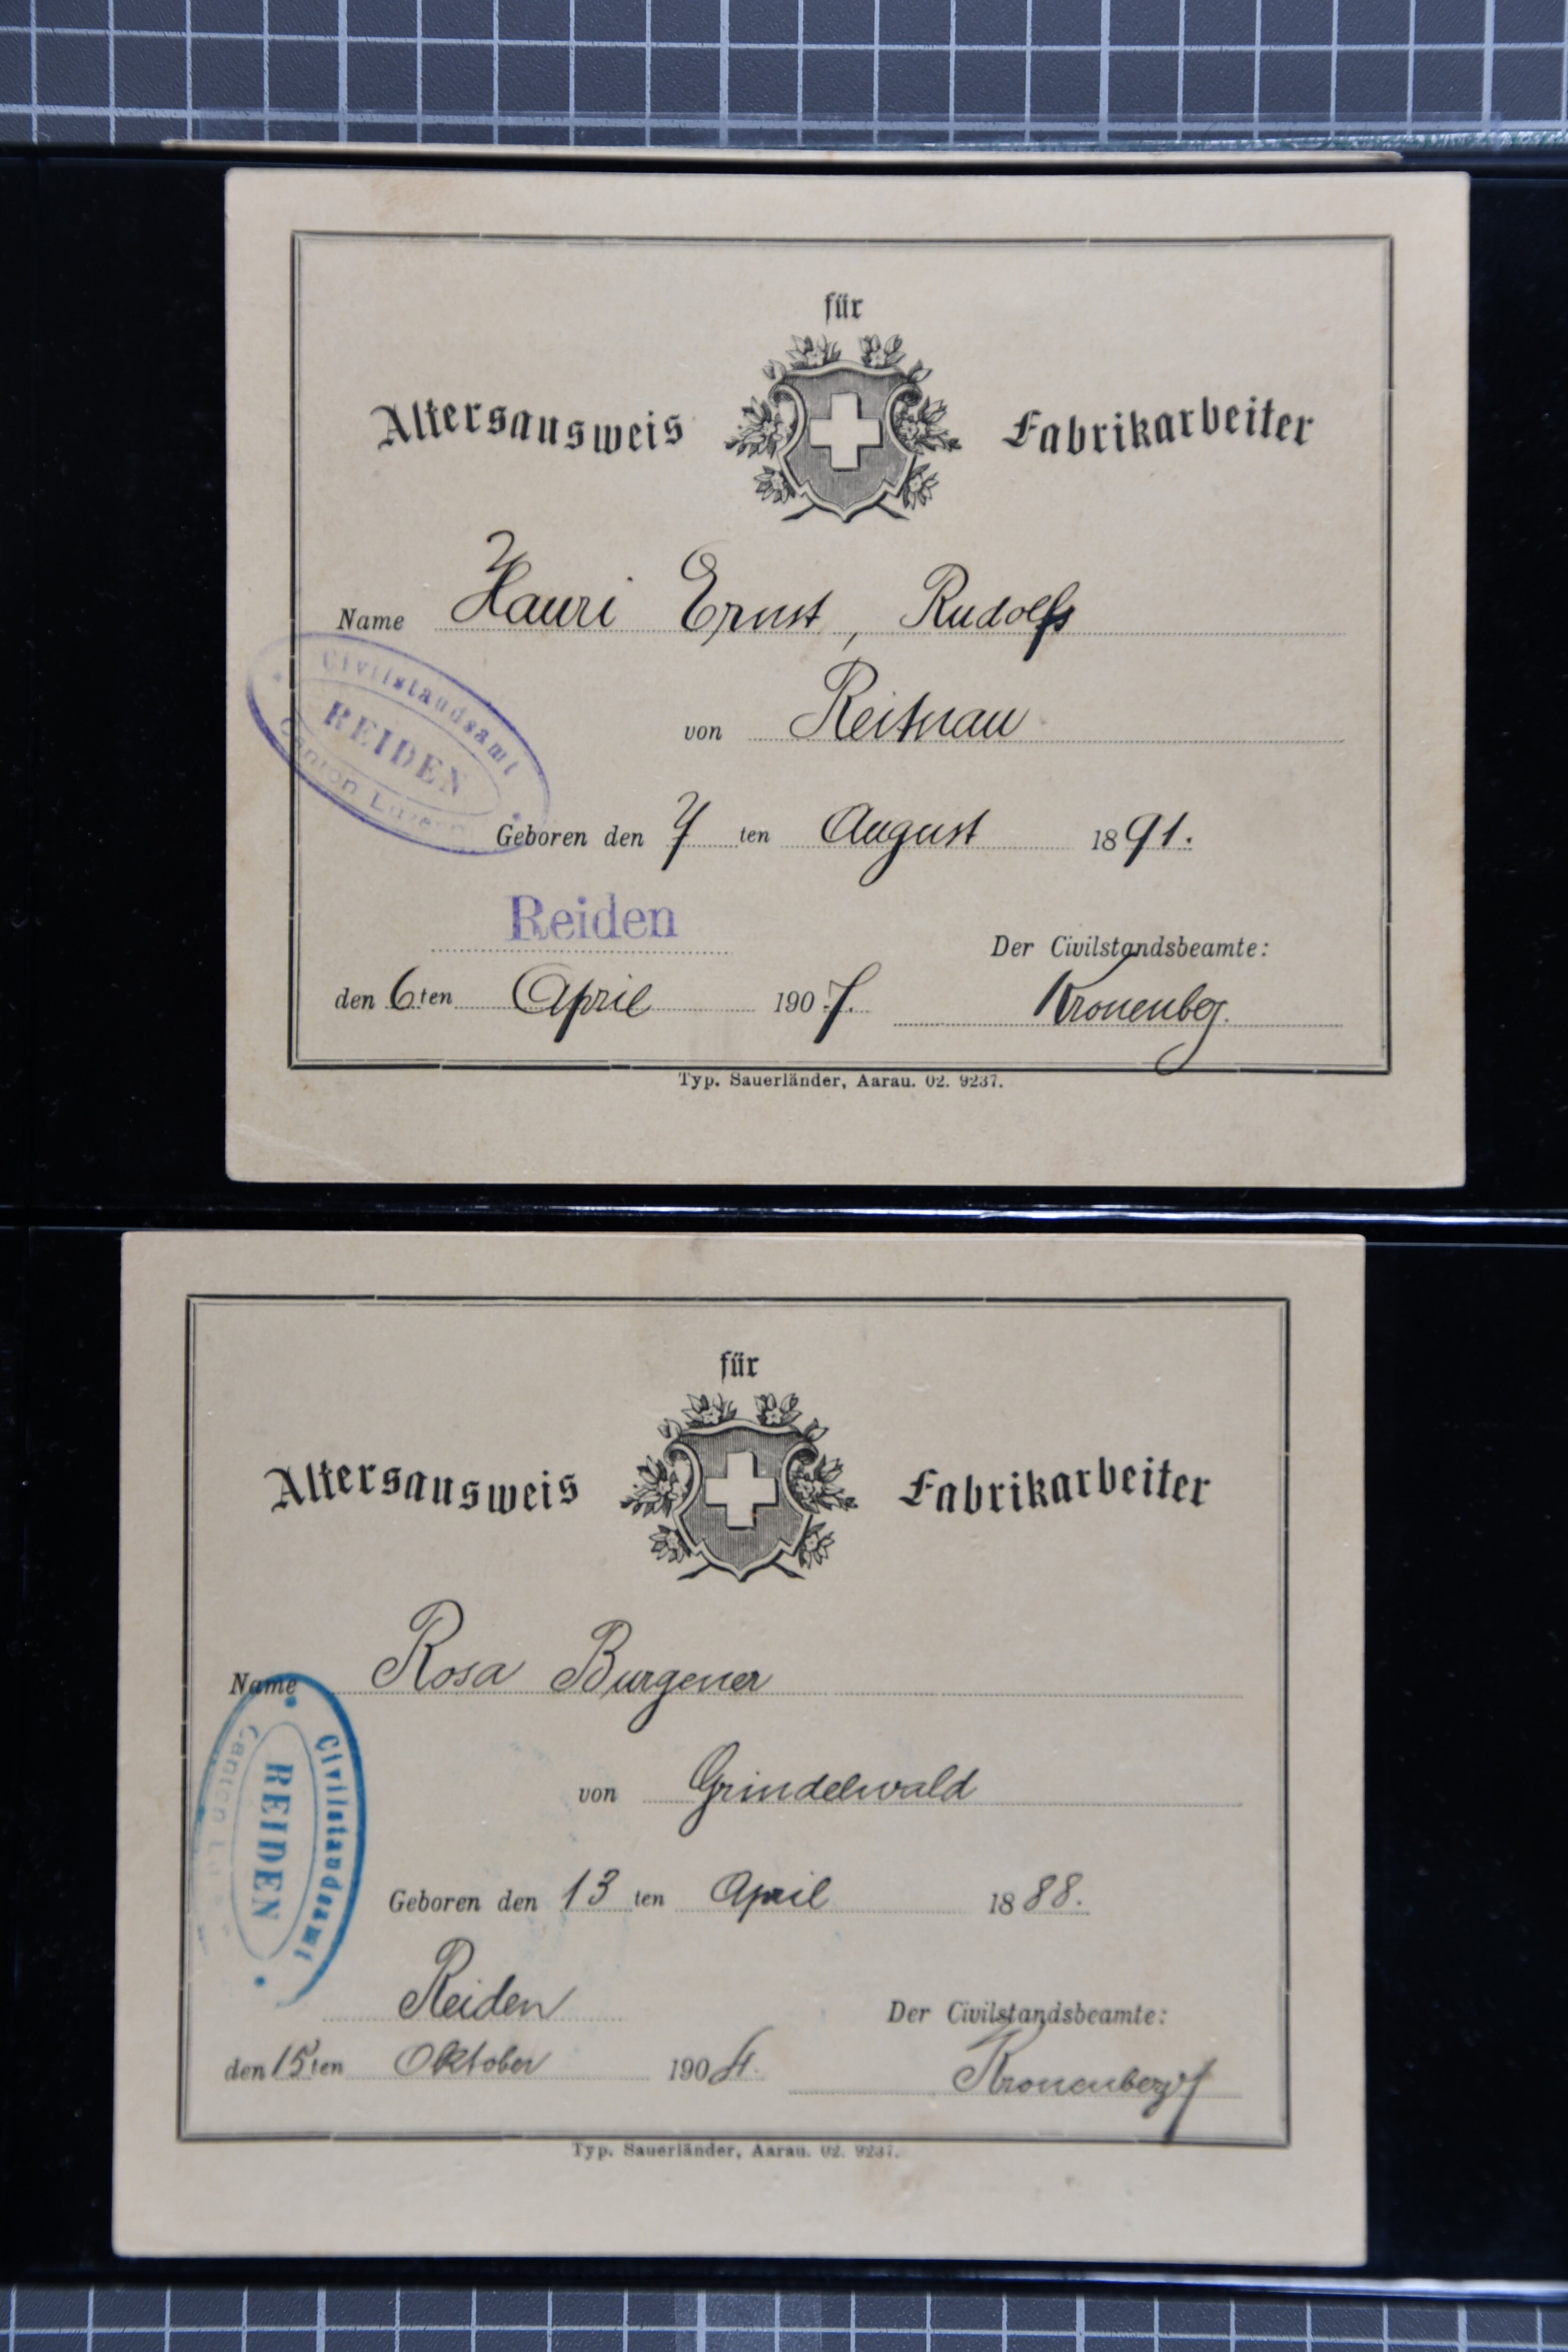 für
Altersausweis Fabrikarbeiter
Name Hauri Ernst, Rudolfs
von Reitnau
Civilstandsamt
REIDEN
Canton Luzern
Geboren den 7 ten August 1891.
Reiden
Der Civilstandsbeamte:
den 6ten April 1907. Kronenbeg.
Typ. Sauerländer, Aarau. 02. 9237.
für
Altersausweis Fabrikarbeiter
Name Rosa Burgener
von Grindelwald
Civilstandsamt
REIDEN
Canton Lu
Geboren den 13 ten April 1888.
Reiden
Der Civilstandsbeamte:
den 15ten Oktober 1904. Kronenberg
Typ. Sauerländer, Aarau. 02. 9237.